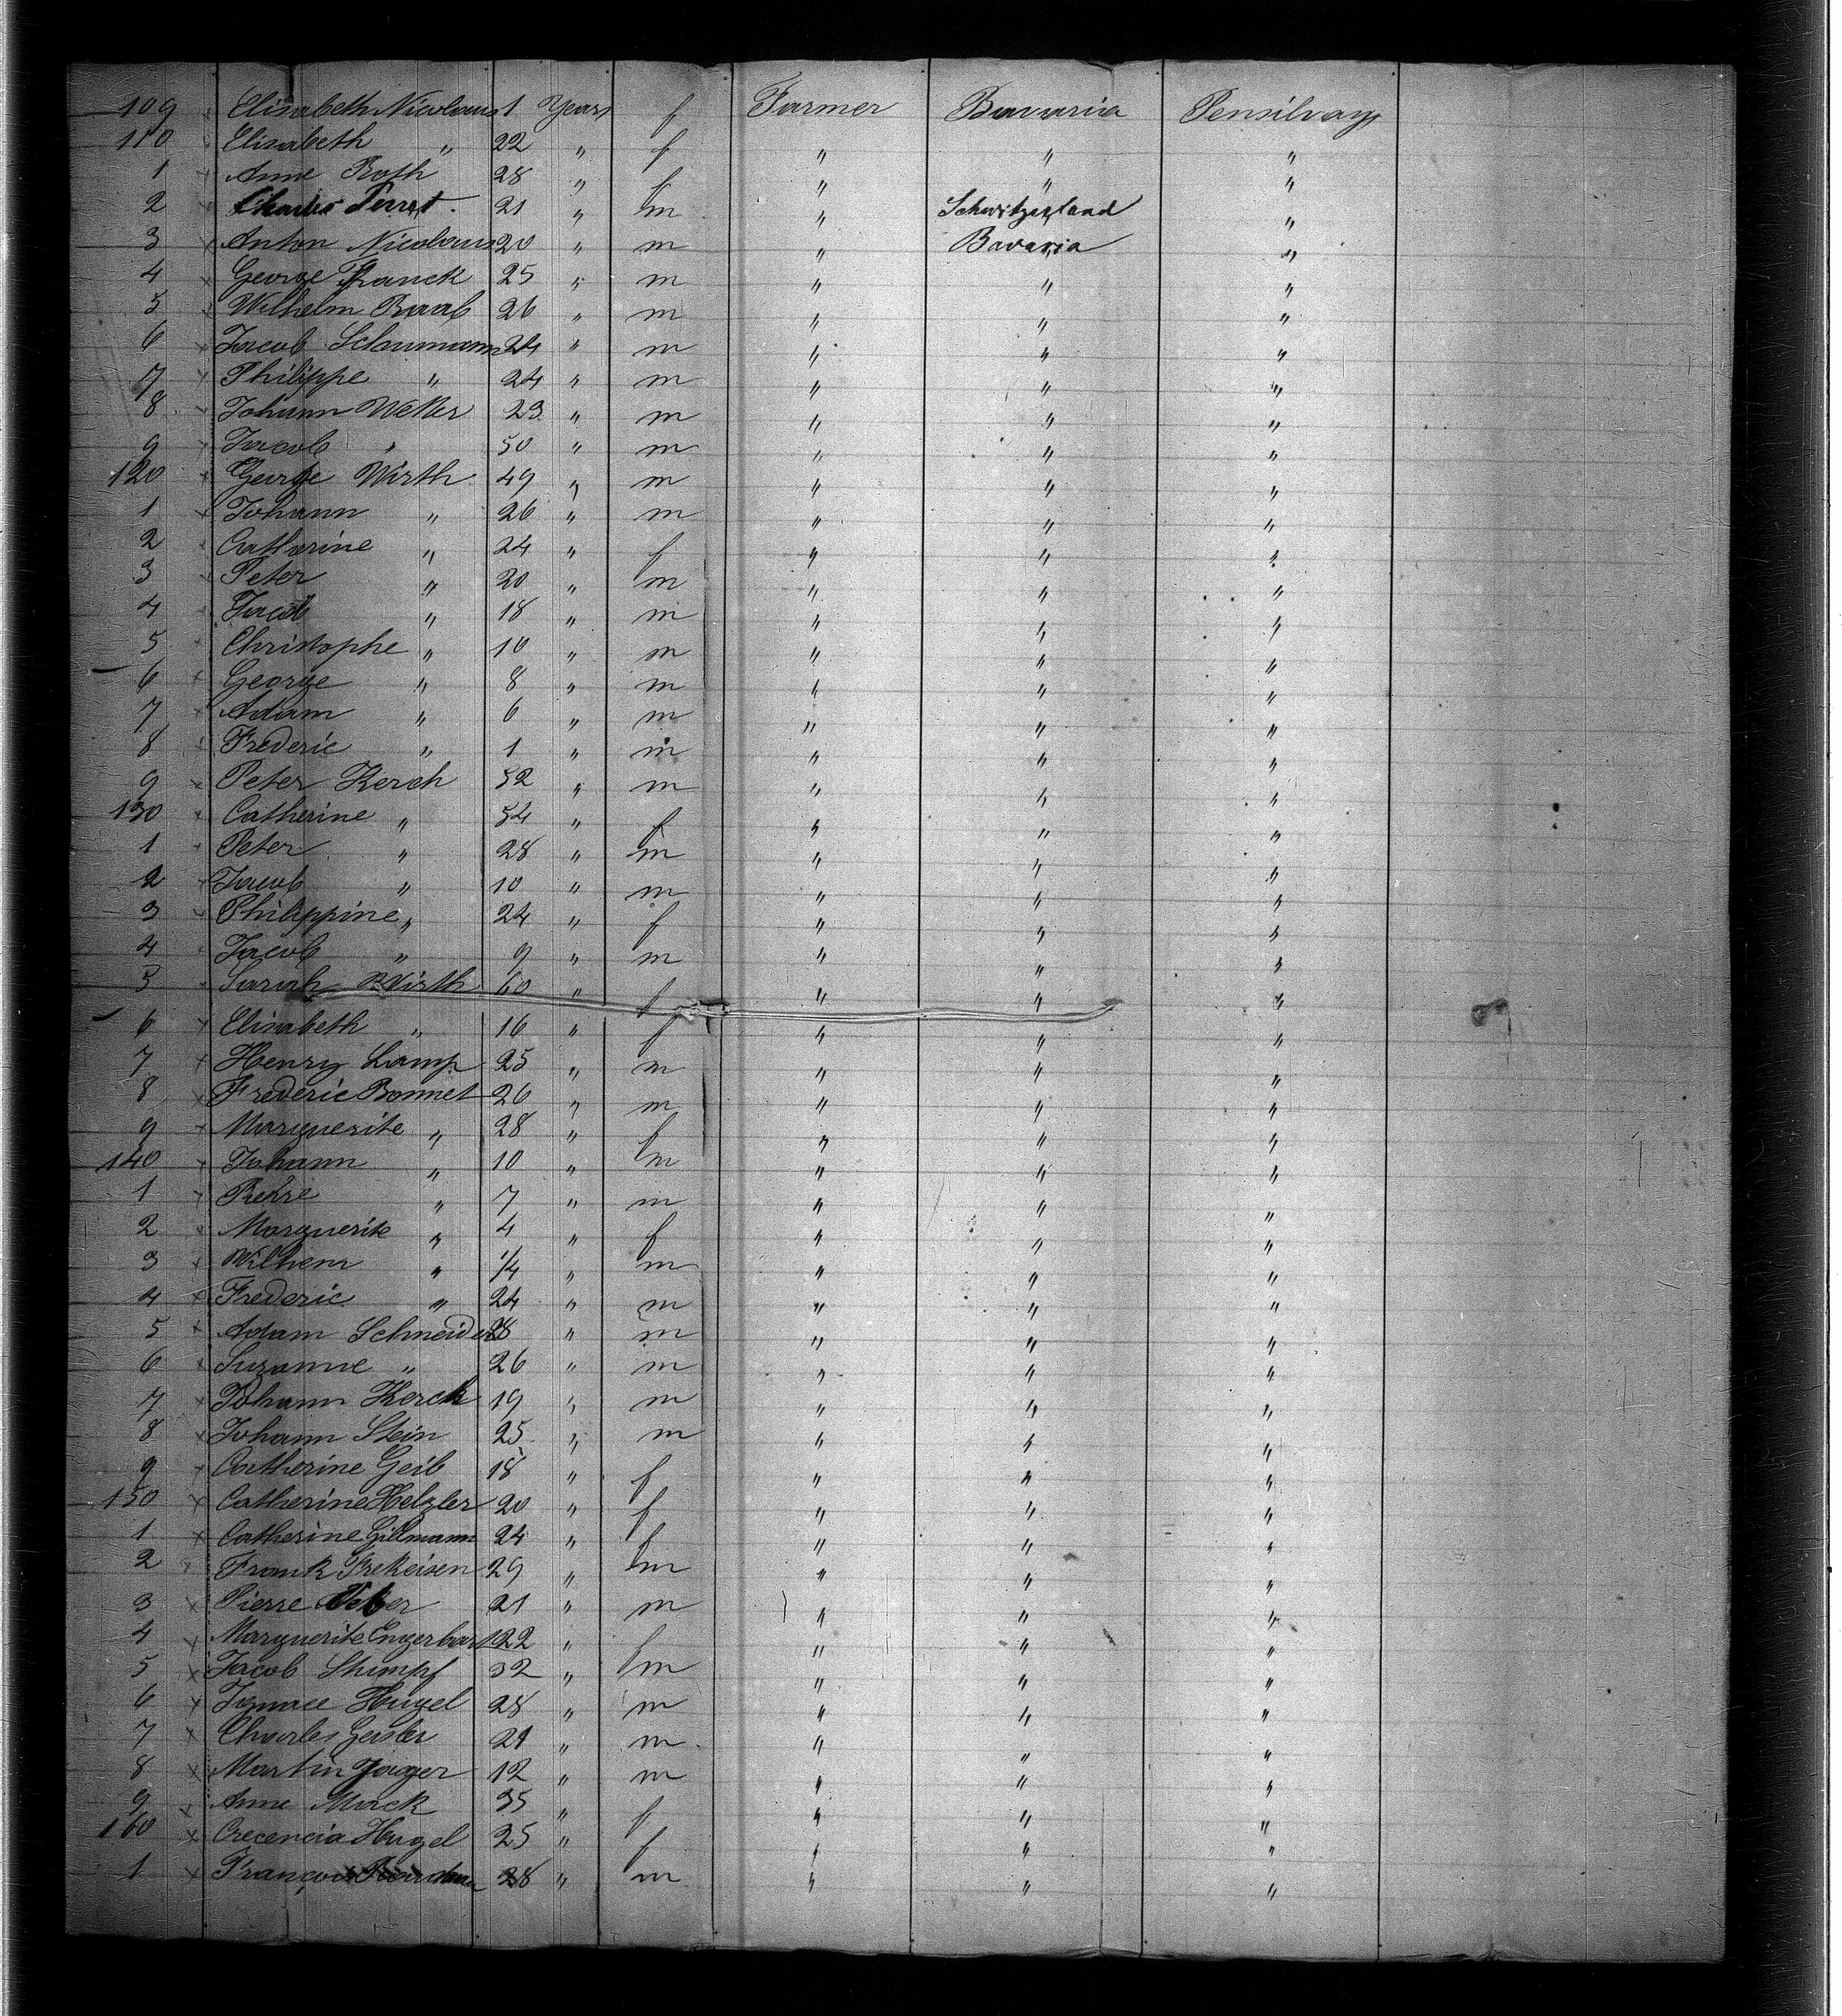 109 Elisabeth Nicolaus 1 Years f Farmer Bavaria Pensilvany
110 Elisabeth " 22 " f " " "
1 Anne Roth 28 " f " " "
2 Charles Perret. 21 " m " Schwitzerland "
3 Anton Nicolaus 20 " m " Bavaria "
4 George Franck 25 " m " " "
5 Wilhelm Raab 26 " m " " "
6 Jacob Schaumann 24 " m " " "
7 Philippe " 24 " m " " "
8 Johann Weller 23 " m " " "
9 Jacob " 50 " m " " "
120 George Wirth 49 " m " " "
1 Johann " 26 " m " " "
2 Catherine " 24 " f " " "
3 Peter " 20 " m " " "
4 Jacob " 18 " m " " "
5 Christophe " 10 " m " " "
6 George " 8 " m " " "
7 Adam " 6 " m " " "
8 Frederic " 1 " m " " "
9 Peter Kerch 52 " m " " "
130 Catherine " 54 " f " " "
1 Peter " 28 " m " " "
2 Jacob " 10 " m " " "
3 Philippine " 24 " f " " "
4 Jacob " 9 " m " " "
5 Sarah Wirth 60 " f " " "
6 Elisabeth " 16 " f " " "
7 Henry Lamp 25 " m " " "
8 Frederic Bonnet 26 " m " " "
9 Marguerite " 28 " f " " "
140 Johann " 10 " m " " "
1 " 7 " m " " "
2 Marguerite " 4 " f " " "
3 Wilhem " 1/4 " m " " "
4 Frederic " 24 " m " " "
5 Adam Schneider 28 " m " " "
6 Suzanne " 26 " m " " "
7 Johann Kerck 19 " m " " "
8 Johann Stein 25 " m " " "
9 Catherine Geib 18 " f " " "
150 Catherine Helzler 20 " f " " "
1 Catherine Gillmann 24 " f " " "
2 Frank Frekeisen 29 " m " " "
3 Pierre 21 " m " " "
4 Marguerite Engerbart 22 " f " " "
5 Jacob Stumpf 32 " m " " "
6 Ignace Hugel 28 " m " " "
7 Charles Geisler 21 " m " " "
8 Martin Jager 12 " m " " "
9 Anne Mack 35 " f " " "
160 Crecencia Hugel 25 " f " " "
1 François 28 " m " " "